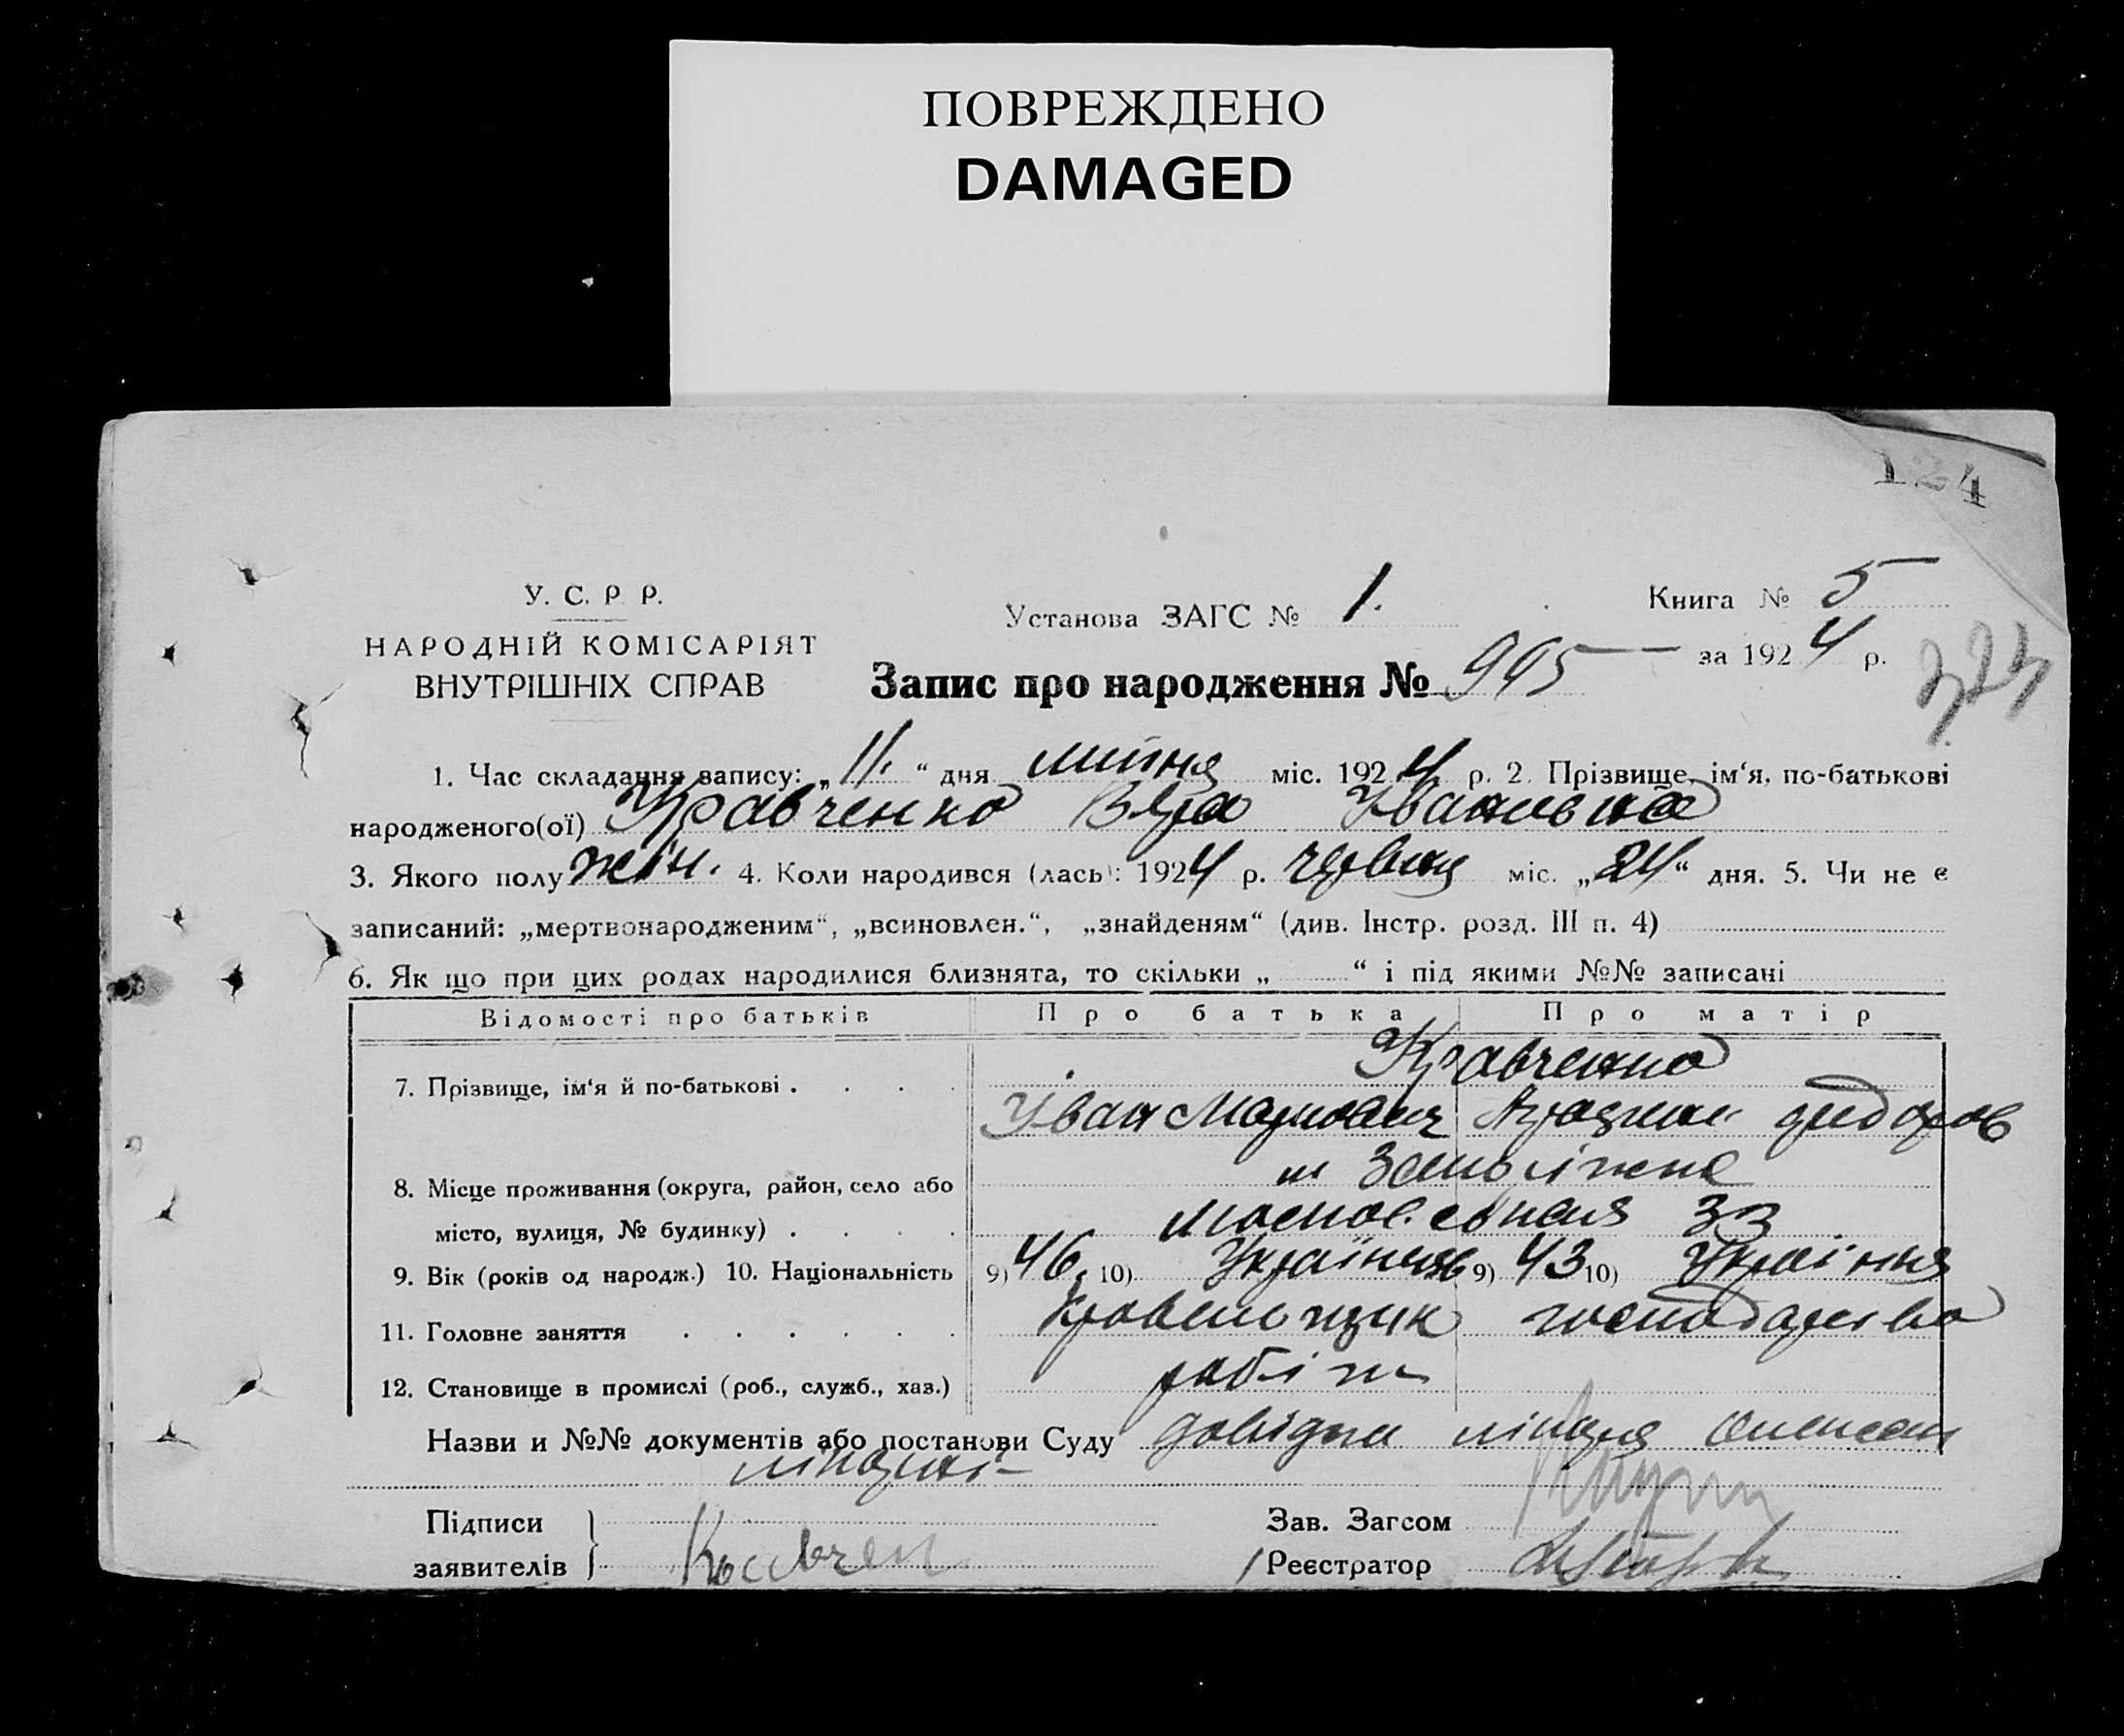 ПОВРЕЖДЕНО
DAMAGED
124
У. С. Р. Р.
НАРОДНІЙ КОМІСАРІЯТ
ВНУТРІШНІХ СПРАВ
Установа ЗАГС № 1.
Книга № 5
за 1924 р.
Запис про народження №
1. Час складання запису: „11.“ дня липня міс. 1924 р. 2. Прізвище, ім‘я, по-батькові
народженого(ої) Кравченко Вера Івановна
3. Якого полу жін. 4. Коли народився (лась): 1924 р. червня міс. „24“ дня. 5. Чи не є
записаний: „мертвонародженим“, „всиновлен.“, „знайденям“ (див. Інстр. розд. III п. 4)
6. Як що при цих родах народилися близнята, то скільки „ “ і під якими №№ записані
Відомості про батьків Про батька Про матір
Кравченко
7. Прізвище, ім‘я й по-батькові . . . .
Іван Федоров
8. Місце проживання (округа, район, село або м Запоріжжє
місто, вулиця, № будинку) . . . . 33
9. Вік (років од народж.) 10. Національність 9) 46. 10) Українець 9) 43 10) Україн
11. Головне заняття . . . . . . Кровельщик господарство
12. Становище в промислі (роб., служб., хаз.) робітн
Назви и №№ документів або постанови Суду довідка лікаря
лікарні
Підписи
заявителів
Кравчен
Зав. Загсом
Реєстратор